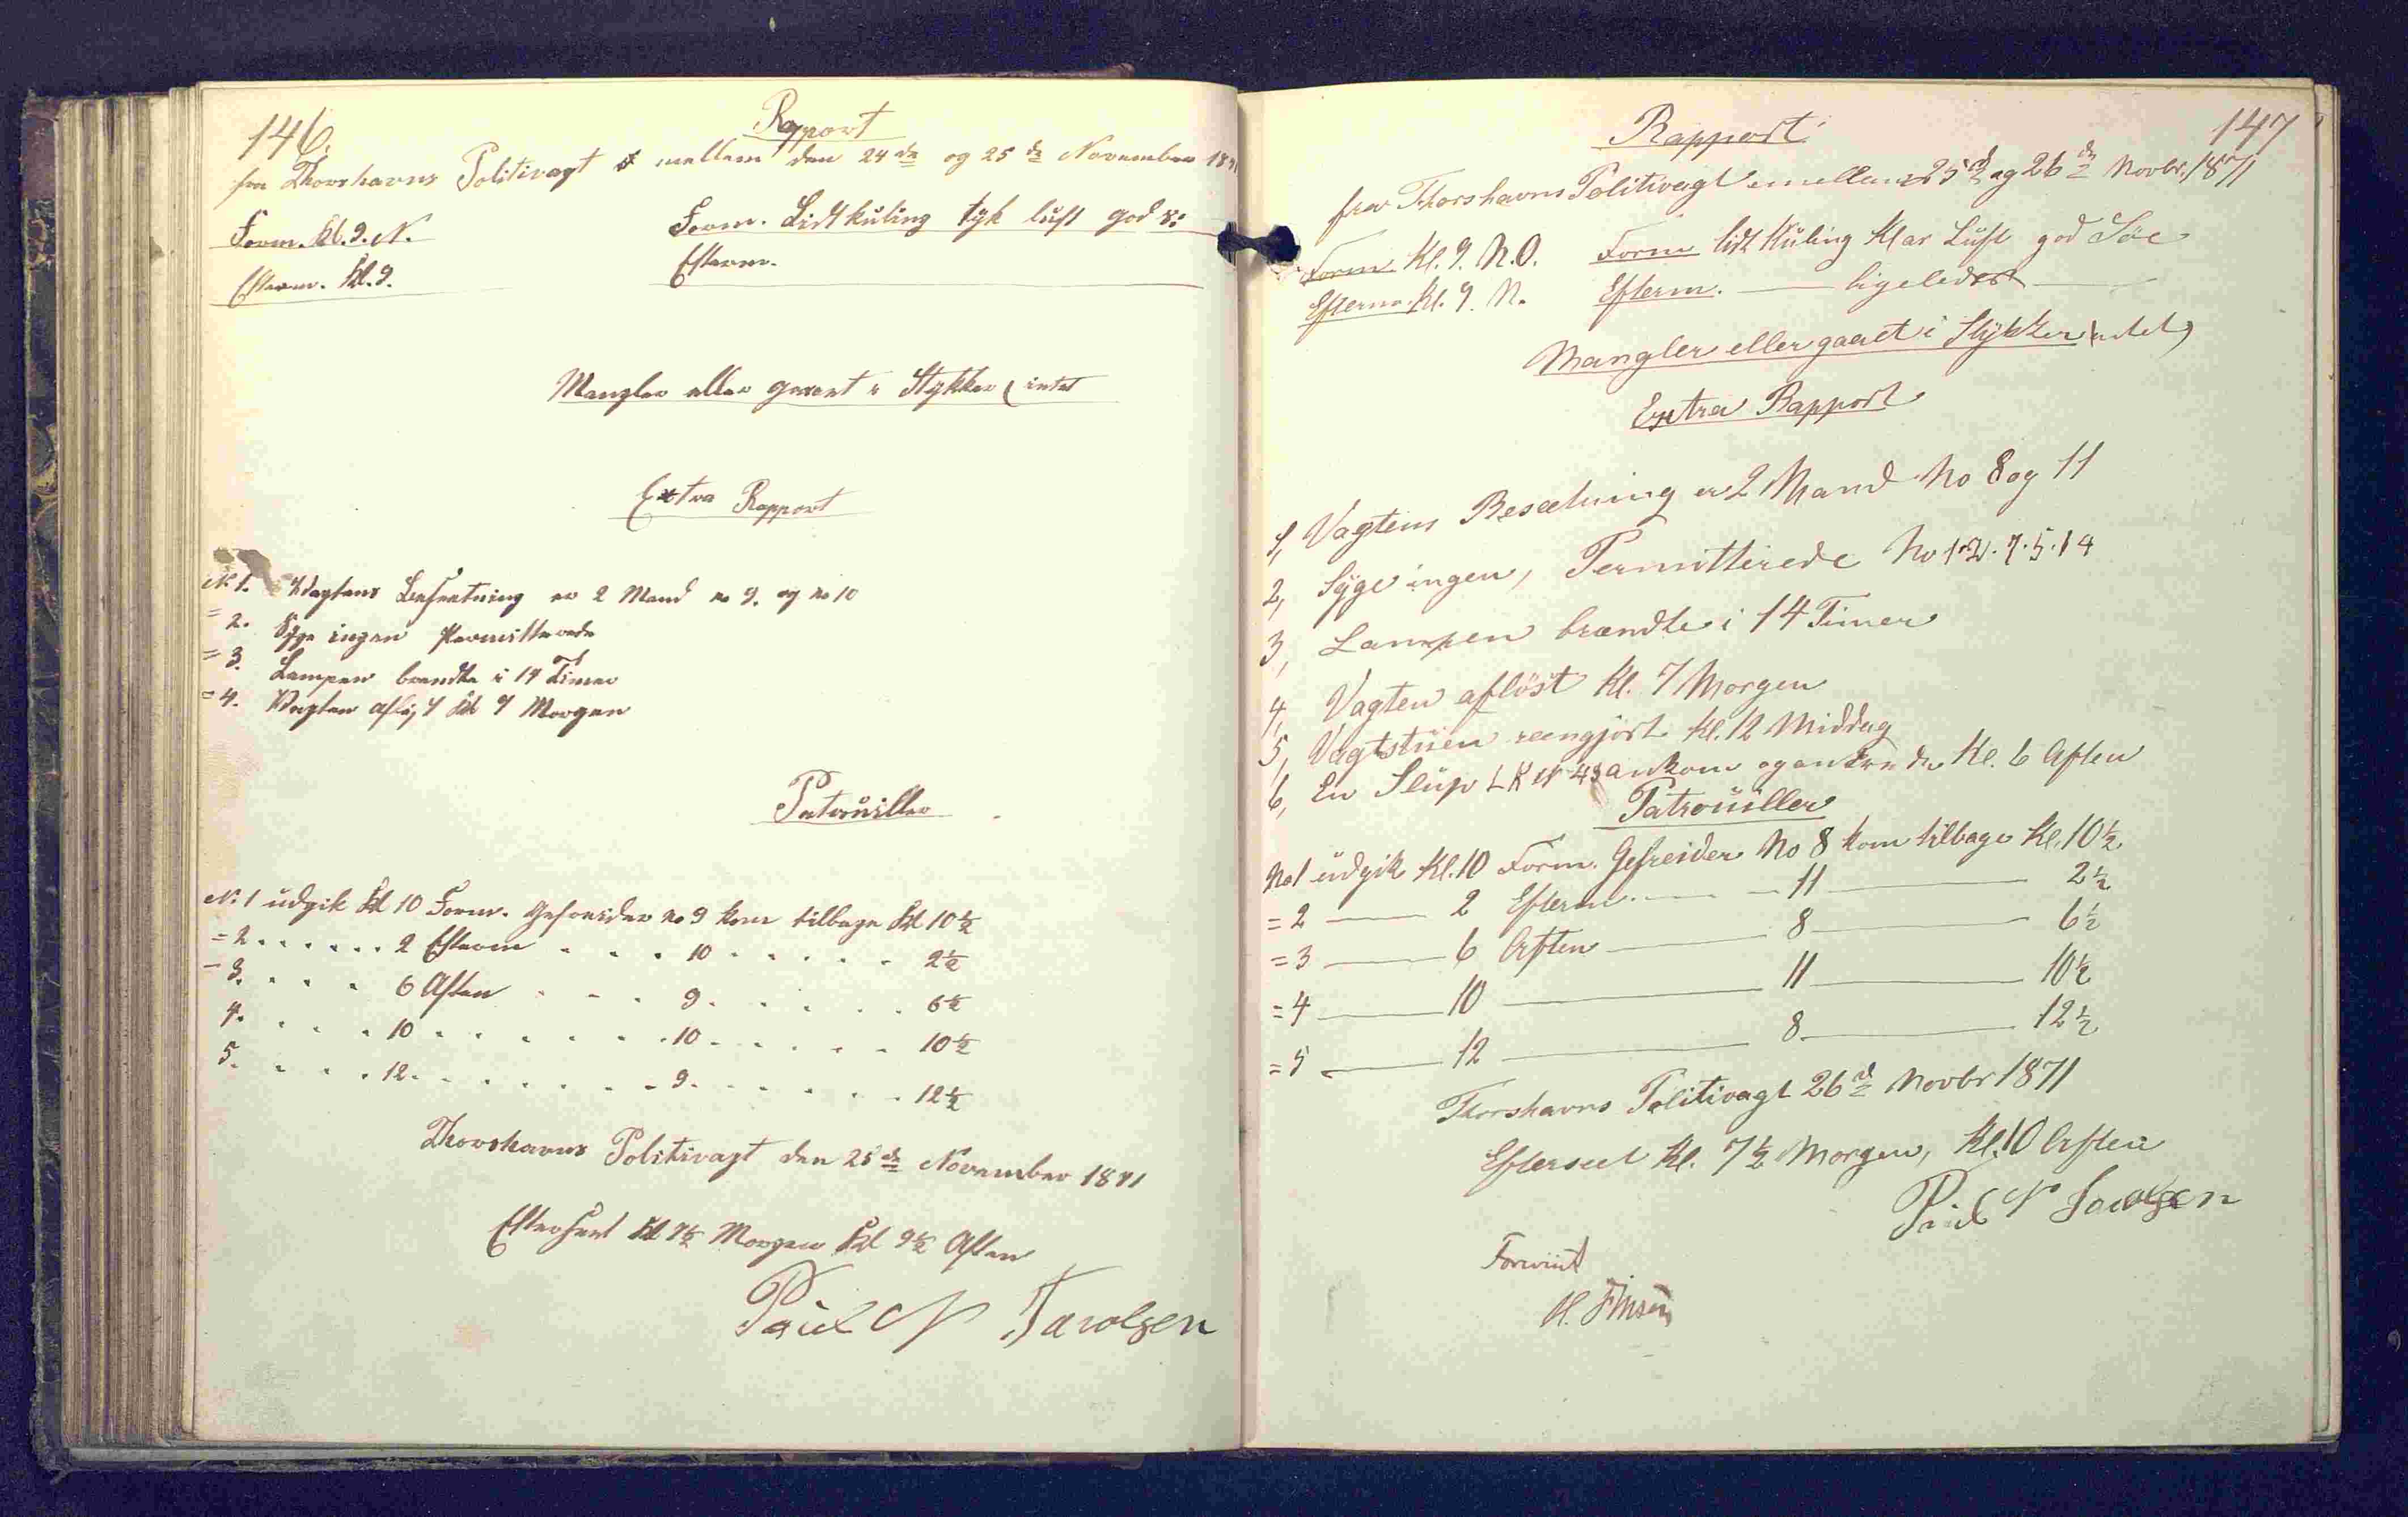 146.
Rapport
fra Thorshavns Politivagt mellem den 24de og 25de November 1871
Form. Kl. 9. N. Form. Lidt küling tÿk lüft god
Efterm. Kl. 9. Efterm.
Mangler eller gaaet i Stÿkker (intet
Extra Rapport
N 1. Vagtens Besætning er 2 Mand no 9. og no 10
= 2. Sÿge ingen Permitterede
= 3. Lampen brændte i 14 Timer
= 4. Vagten afløst Kl 7 Morgen
Patroüiller
N. 1 üdgik Kl 10 Form. Gefreider no 9 kom tilbage Kl 10 1/2
= 2 . . . . . . 2 Efterm . . . 10 . . . . . 2 1/2
= 3. . . . 6 Aften . . . 9. . . . . . 6 1/2
4. . . . 10 . . . . . . 10 . . . . . 10 1/2
5. . . . 12 . . . . . . 9. . . . . . 12 1/2
Thorshavns Politivagt den 25de November 1871
Efterseet Kl 7 1/2 Morgen Kl 9 1/2 Aften
Poül N Jacobsen
147
Rapport
fra Thorshavns Politivagt emellem 25de og 26de Novbr. 1871
Form Kl. 9. N.O. Form lidt Küling Klar Lüft god Söe
Efterm. Kl. 9. N. Efterm. — ligeledes —
Mangler eller gaaet i Stÿkker (intet)
Extra Rapport
1, Vagtens Besætning er 2 Mand No 8 og 11
2, Sÿge ingen, Permitterede No 1. 2. 7. 5. 14
3, Lampen brændte i 14 Timer
4, Vagten aflöst Kl. 7 Morgen
5, Vagtstüen reengjört Kl. 12 Middag
6, En Slüp LK N 43 ankom og ankrede Kl. 6 Aften
Patroüiller
No 1 üdgik Kl. 10 Form. Gefreider No 8 kom tilbage Kl. 10 1/2
= 2 — 2 Efterm. — 11 — 2 1/2
= 3 — 6 Aften — 8 — 6 1/2
= 4 — 10 — 11 — 10 1/2
= 5 — 12 — 8 — 12 1/2
Thorshavns Politivagt 26de Novbr 1871
Efterseet Kl. 7 1/2 Morgen, Kl. 10 Aften
Poül N Jacobsen
Foreviist
H. Finsen